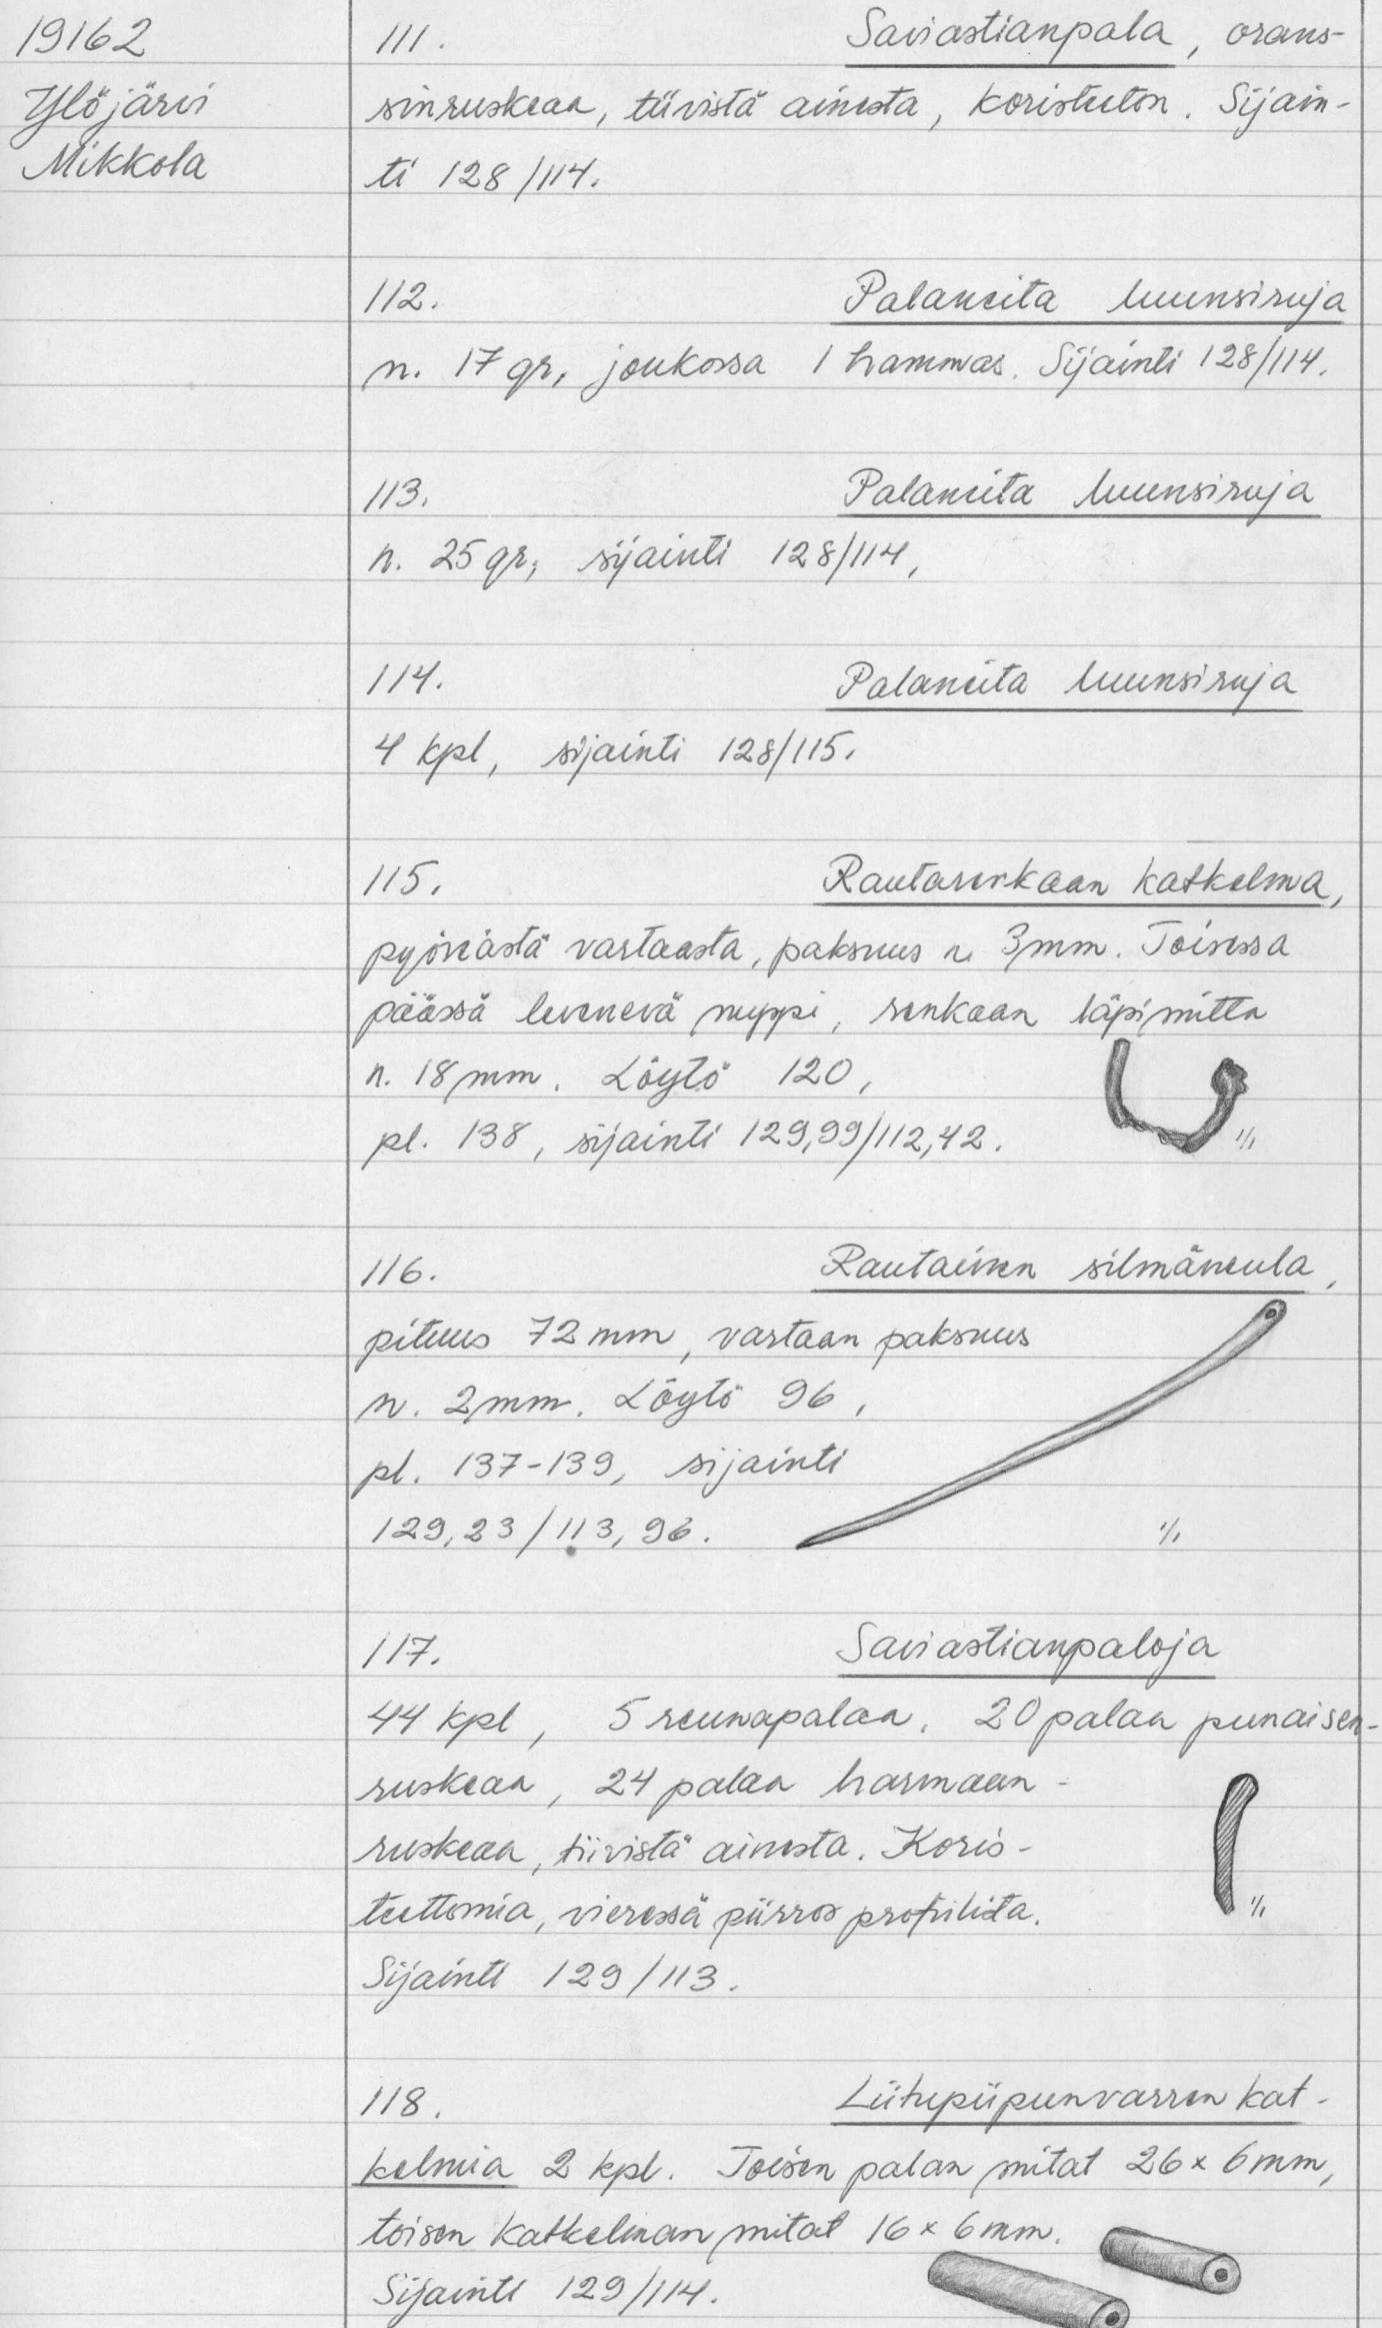 19162
Ylöjärvi
Mikkola
111. Saviastianpala, orans-
sinruskeaa, tiivistä ainesta, koristeeton. Sijain-
ti 128/114.
112. Palaneita luunsiruja
n. 17 gr, joukossa 1 hammas. Sijainti 128/114.
113. Palaneita luunsiruja
n. 25 gr, sijainti 128/114,
114. Palaneita luunsiruja
4 kpl, sijainti 128/115.
115. Rautarenkaan katkelma,
pyöreästä vartaasta, paksuus n. 3mm. Toisessa
päässä levenevä nuppi, renkaan läpimitta
n. 18 mm. Löytö 120,
pl. 138, sijainti 129,99/112,42.
1/1
116. Rautainen silmäneula,
pituus 72 mm, vartaan paksuus
n. 2mm. Löytö 96,
pl. 137-139, sijainti
129,23/113,96.
1/1
117. Saviastianpaloja
44 kpl, 5 reunapalaa. 20 palaa punaisen-
ruskeaa, 24 palaa harmaan-
ruskeaa, tiivistä ainesta. Koris-
teettomia, vieressä piirros profiilista.
1/1
Sijainti 129/113.
118. Liitupiipunvarren kat-
kelmia 2 kpl. Toisen palan mitat 26 x 6 mm,
toisen katkelman mitat 16 x 6 mm.
Sijainti 129/114.